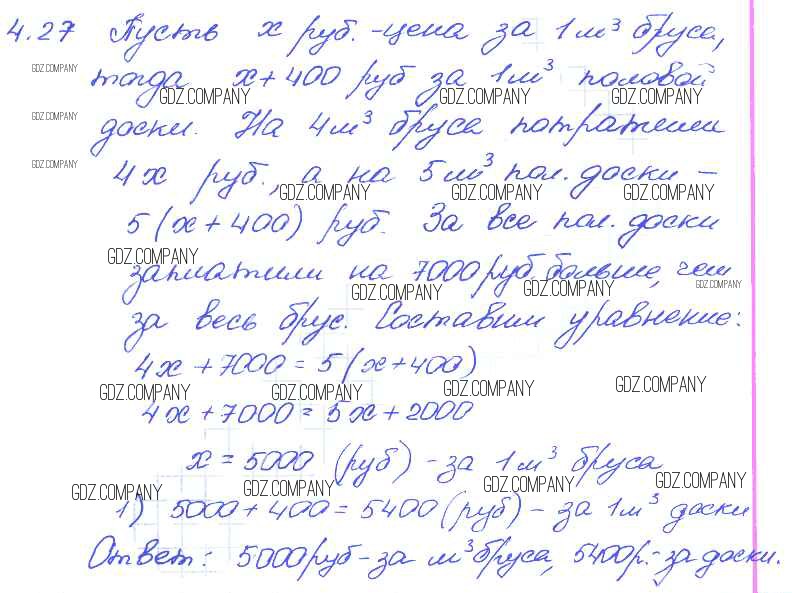 4.27 Пусть x руб. - цена за 1 м³ бруса,
GDZ.COMPANY
тогда x + 400 руб за 1 м³ половой
GDZ.COMPANY GDZ.COMPANY GDZ.COMPANY
GDZ.COMPANY
доски. На 4 м³ бруса потратили
GDZ.COMPANY
4x руб., а на 5 м³ пол. доски –
GDZ.COMPANY GDZ.COMPANY GDZ.COMPANY
5(x + 400) руб. За все пол. доски
GDZ.COMPANY
заплатили на 7000 руб больше, чем
GDZ.COMPANY GDZ.COMPANY GDZ.COMPANY
за весь брус. Составим уравнение:
4x + 7000 = 5(x + 400)
GDZ.COMPANY GDZ.COMPANY GDZ.COMPANY GDZ.COMPANY
4x + 7000 = 5x + 2000
x = 5000 (руб) - за 1 м³ бруса
GDZ.COMPANY GDZ.COMPANY GDZ.COMPANY GDZ.COMPANY
1) 5000 + 400 = 5400 (руб) - за 1 м³ доски
Ответ: 5000 руб - за м³ бруса, 5400 р. - за доски.